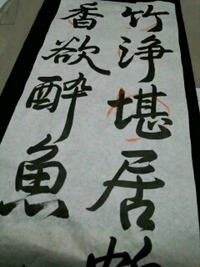 竹浄堪居
香欲酔魚